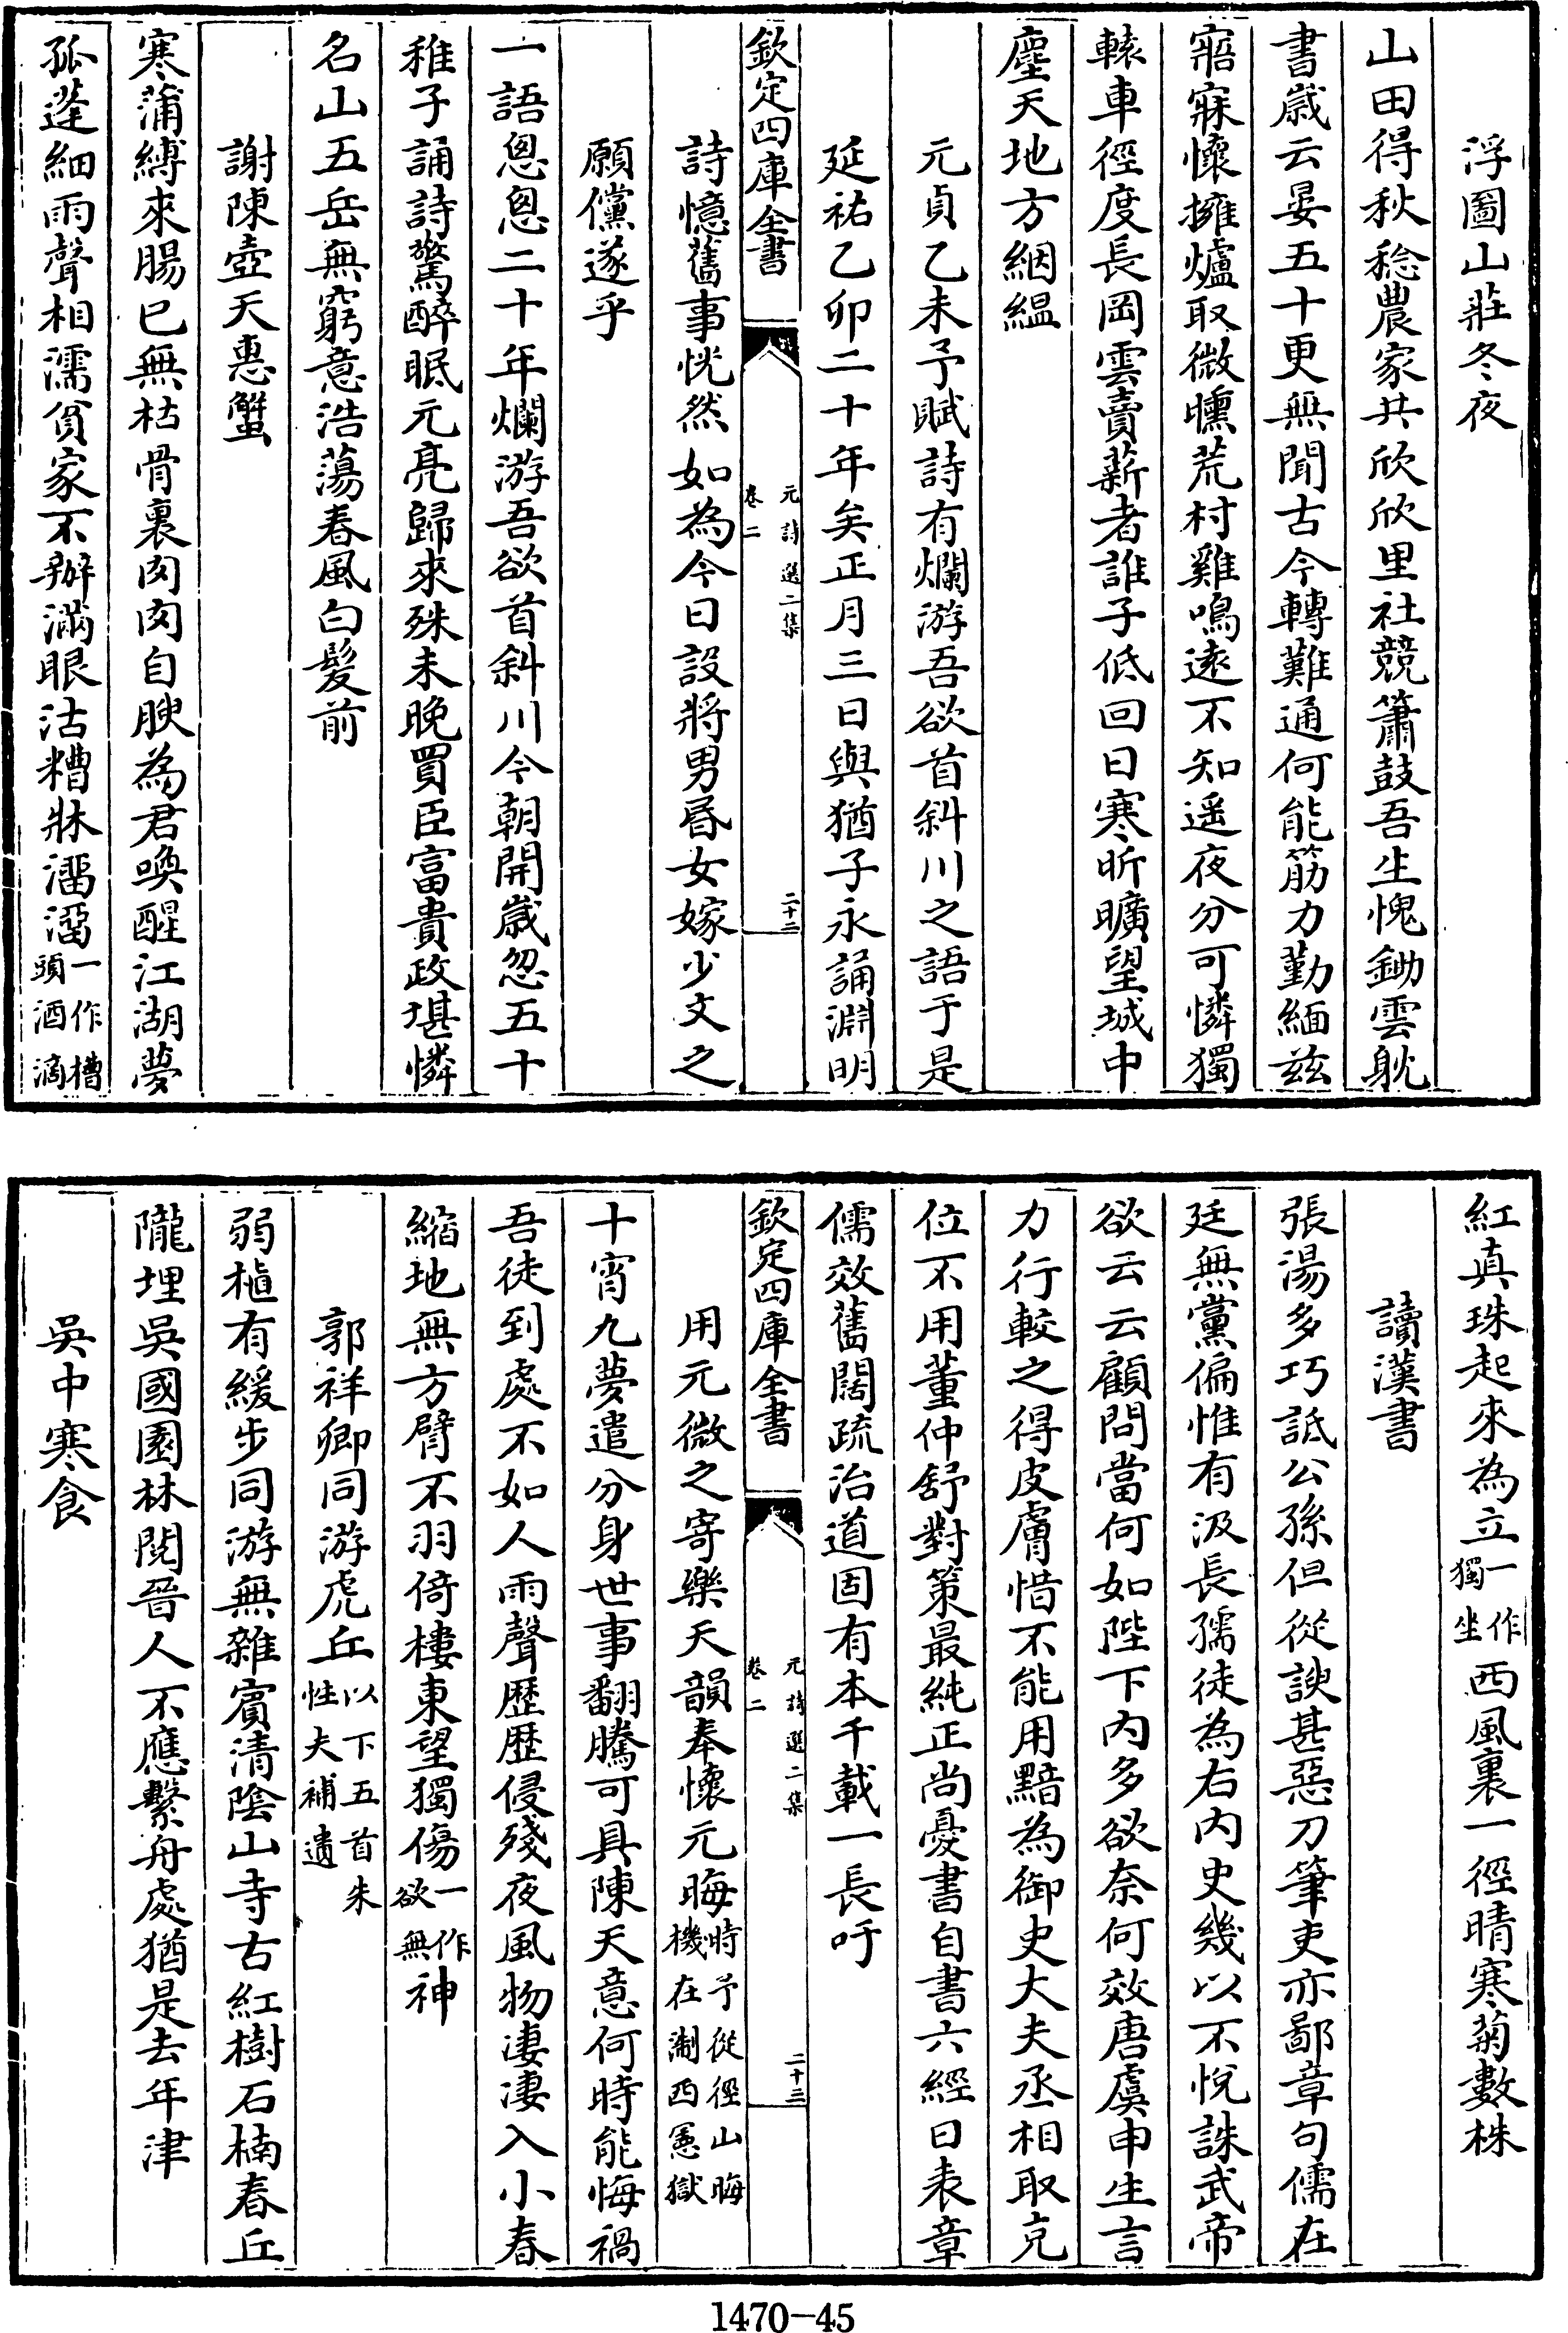 浮圖山莊冬夜
山田得秋稔農家共欣欣里社競簫鼓吾生愧鋤雲躭
書歲云晏五十更無聞古今轉難通何能筋力勤緬兹
寤寐懷擁爐取微曛荒村雞鳴遠不知遥夜分可憐獨
轅車徑度長岡雲賣薪者誰子低回日寒昕曠望城中
塵天地方絪緼
元貞乙未予賦詩有爛游吾欲首斜川之語于是
延祐乙卯二十年矣正月三日與猶子永誦淵明
欽定四庫全書
元詩選二集
卷二
二十二
詩憶舊事恍然如為今日設將男昏女嫁少文之
願儻遂乎
一語怱怱二十年爛游吾欲首斜川今朝開歲忽五十
稚子誦詩驚醉眠元亮歸來殊未晚買臣富貴政堪憐
名山五岳無窮意浩蕩春風白髮前
謝陳壺天惠蟹
寒蒲縛來腸已無枯骨裏肉肉自腴為君喚醒江湖夢
孤蓬細雨聲相濡貧家不辦滿眼沽糟牀溜溜一作槽頭酒滴
紅真珠起來為立一作獨坐西風裏一徑晴寒菊數株
讀漢書
張湯多巧詆公孫但從諛甚惡刀筆吏亦鄙章句儒在
廷無黨偏惟有汲長孺徒為右内史幾以不悅誅武帝
欲云云顧問當何如陛下内多欲奈何效唐虞申生言
力行較之得皮膚惜不能用黯為御史大夫丞相取充
位不用董仲舒對策最純正尚憂書自書六經日表章
儒效舊闊疏治道固有本千載一長吁
欽定四庫全書
元詩選二集
卷二
二十三
用元微之寄樂天韻奉懷元晦時予從徑山晦機在淛西憲獄
十宵九夢遣分身世事翻騰可具陳天意何時能悔禍
吾徒到處不如人雨聲歷歷侵殘夜風物凄凄入小春
縮地無方臂不羽倚樓東望獨傷一作欲無神
郭祥卿同游虎丘以下五首朱性夫補遺
弱植有緩步同游無雜賓清陰山寺古紅樹石楠春丘
隴埋吳國園林閱晉人不應繫舟處猶是去年津
吳中寒食
1470-45